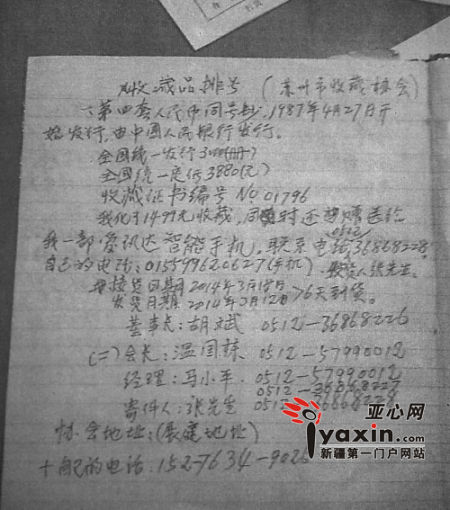 收藏品排号 (苏州市收藏协会)
一、第四套人民币同号钞, 1987年4月27日开
始发行,由中国人民银行发行。
全国统一发行3000(册)
全国统一定价3880(元)
收藏证书编号 NO 01796
我化了1499元收藏,同时还想赠送给
我一部 讯达智能手机。联系电话,36868228,
0512
自己的电话: (手机) 张先生。
接货日期2014年3月18日
发货日期2014年3月12日>6天到货。
董事长:胡斌 0512-36868226
(二)会长:温国栋 0512-57990012
经理:马小平 0512-57990012
0512-36868227
寄件人:张先生 0512-36868228
协会地址:( 地址)
的电话:152-7634-902
亚心网
iyaxin.com
新疆第一门户网站